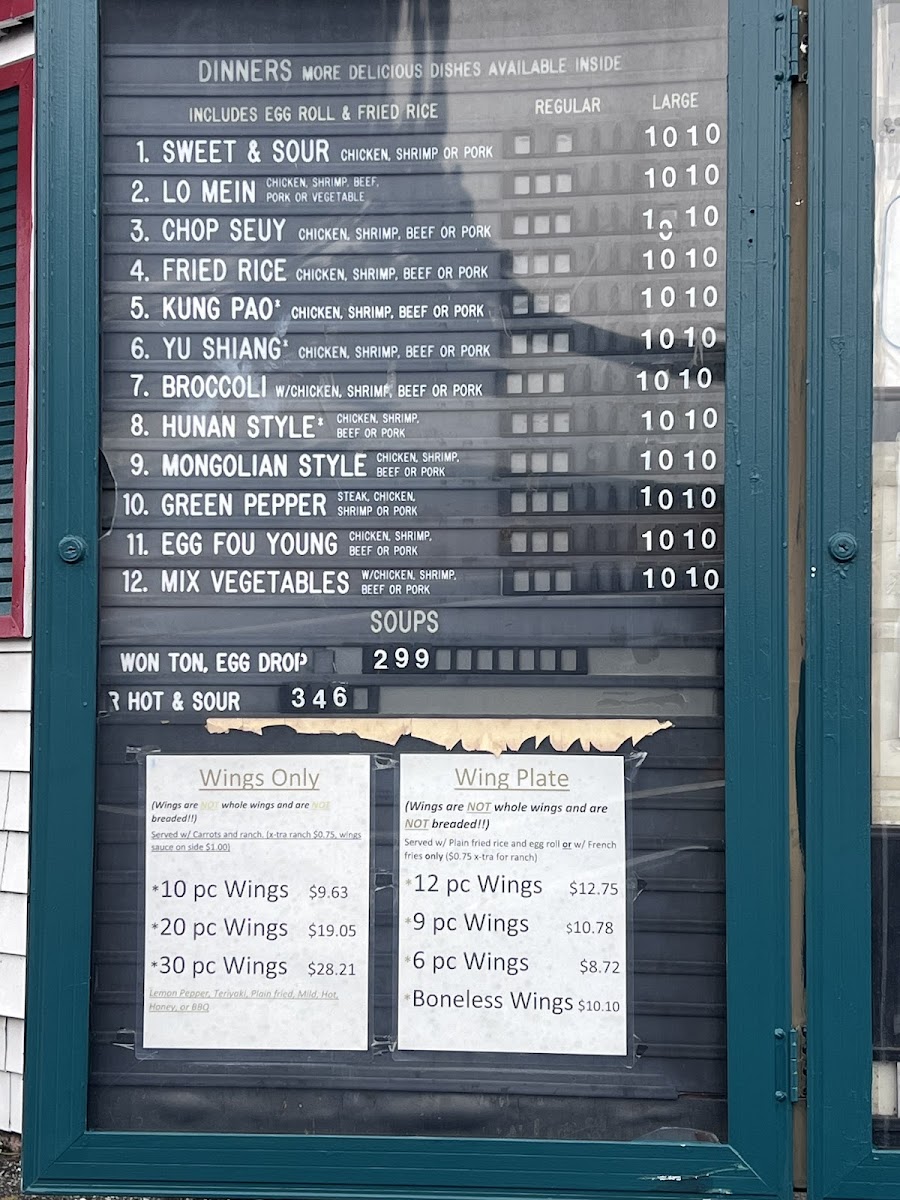 DINNERS MORE DELICIOUS DISHES AVAILABLE INSIDE
INCLUDES EGG ROLL & FRIED RICE REGULAR LARGE
1. SWEET & SOUR CHICKEN, SHRIMP OR PORK 10 10
2. LO MEIN CHICKEN, SHRIMP, BEEF, PORK OR VEGETABLE 10 10
3. CHOP SEUY CHICKEN, SHRIMP, BEEF OR PORK 10 10
4. FRIED RICE CHICKEN, SHRIMP, BEEF OR PORK 10 10
5. KUNG PAO* CHICKEN, SHRIMP, BEEF OR PORK 10 10
6. YU SHIANG* CHICKEN, SHRIMP, BEEF OR PORK 10 10
7. BROCCOLI W/CHICKEN, SHRIMP, BEEF OR PORK 10 10
8. HUNAN STYLE* CHICKEN, SHRIMP, BEEF OR PORK 10 10
9. MONGOLIAN STYLE CHICKEN, SHRIMP, BEEF OR PORK 10 10
10. GREEN PEPPER STEAK, CHICKEN, SHRIMP OR PORK 10 10
11. EGG FOU YOUNG CHICKEN, SHRIMP, BEEF OR PORK 10 10
12. MIX VEGETABLES W/CHICKEN, SHRIMP, BEEF OR PORK 10 10
SOUPS
WON TON, EGG DROP 299
R HOT & SOUR 346
Wings Only
(Wings are NOT whole wings and are NOT
breaded!!)
Served w/ Carrots and ranch. (x-tra ranch $0.75, wings
sauce on side $1.00)
*10 pc Wings $9.63
*20 pc Wings $19.05
*30 pc Wings $28.21
Lemon Pepper, Teriyaki, Plain fried, Mild, Hot,
Honey, or BBQ
Wing Plate
(Wings are NOT whole wings and are
NOT breaded!!)
Served w/ Plain fried rice and egg roll or w/ French
fries only ($0.75 x-tra for ranch)
*12 pc Wings $12.75
*9 pc Wings $10.78
*6 pc Wings $8.72
*Boneless Wings $10.10